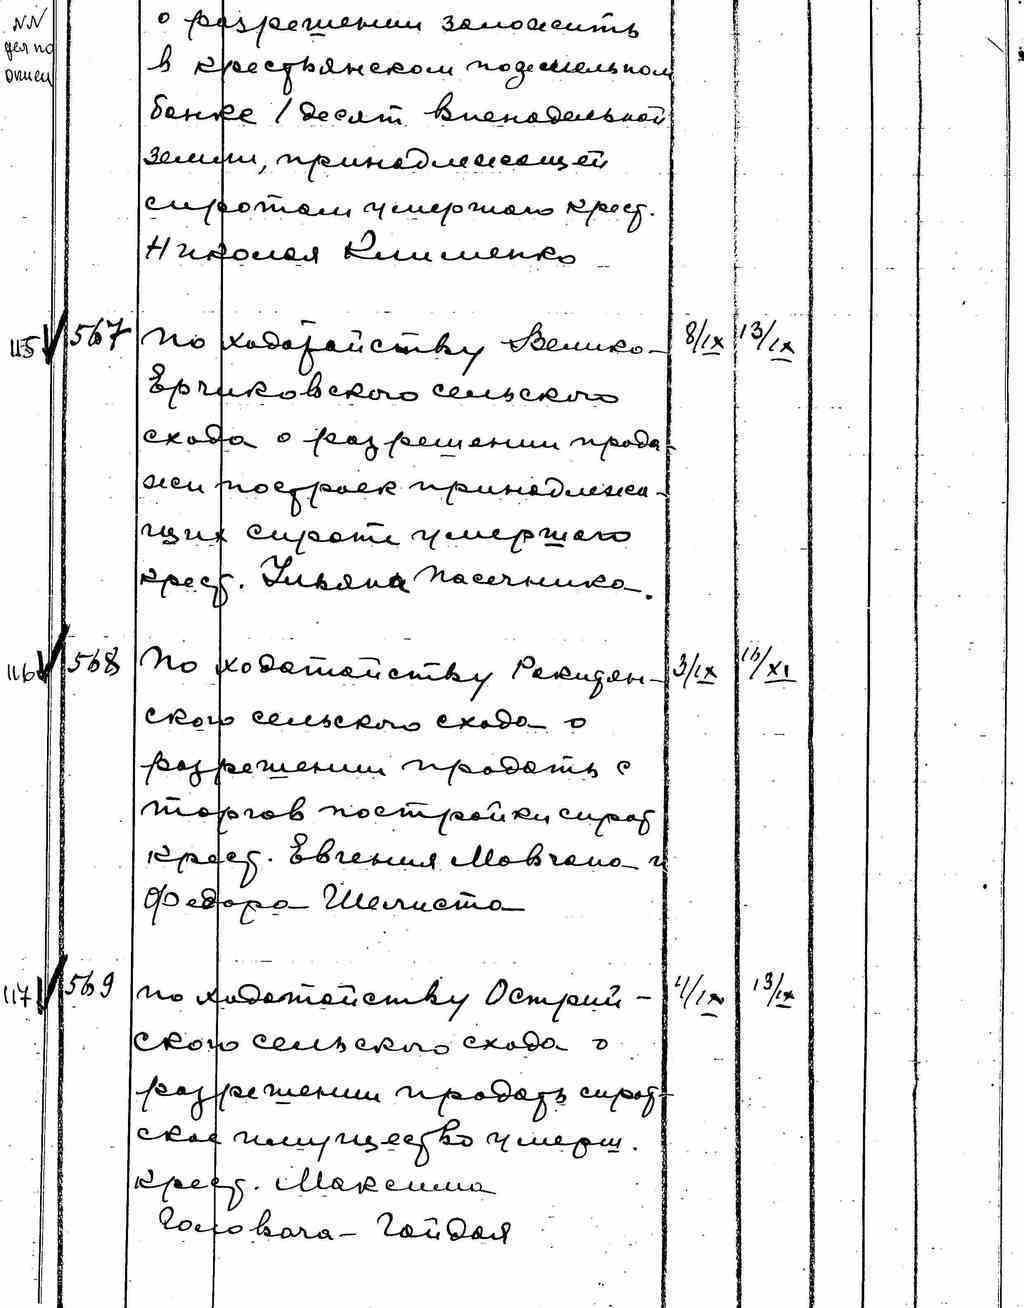 NN
дел по
описи
о разрешении заложить
в крестьянском поземельном
банке 1 десят. вненадельной
земли, принадлежащей
сиротам умершего крест.
Николая Клименко
115 567 По ходатайству Велико- 8/IX 13/IX
Ерчиковского сельского
схода о разрешении прода-
жи построек принадлежа-
щих сироте умершего
крест. Ульяна Пасечника.
116 568 По ходатайству Ракитян- 3/IX 16/XI
ского сельского схода о
разрешении продать с
торгов постройки сирот
крест. Евгения Мовчана и
Федора Шелиста
117 569 по ходатайству Острий- 4/IX 13/IX
ского сельского схода о
разрешении продать сирот-
ское имущество умерш.
крест. Максима
Головача-Гайдая